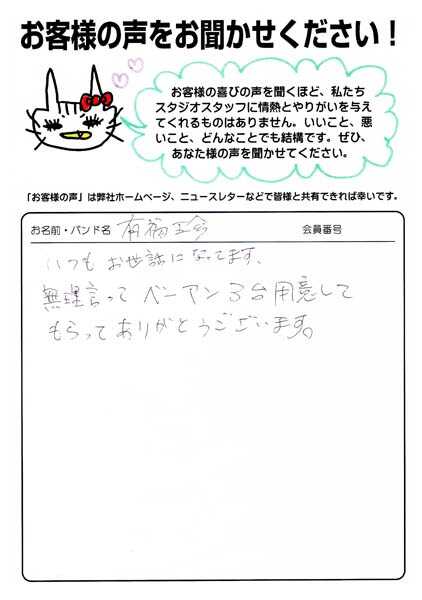 お客様の声をお聞かせください！
お客様の喜びの声を聞くほど、私たち
スタジオスタッフに情熱とやりがいを与え
てくれるものはありません。いいこと、悪
いこと、どんなことでも結構です。ぜひ、
あなた様の声を聞かせてください。
「お客様の声」は弊社ホームページ、ニュースレターなどで皆様と共有できれば幸いです。
お名前・バンド名 有福 会員番号
いつもお世話になってます、
無理言ってベーアン3台用意して
もらってありがとうございます。